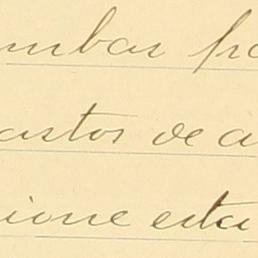 mbas pa
astos de a
ione esta